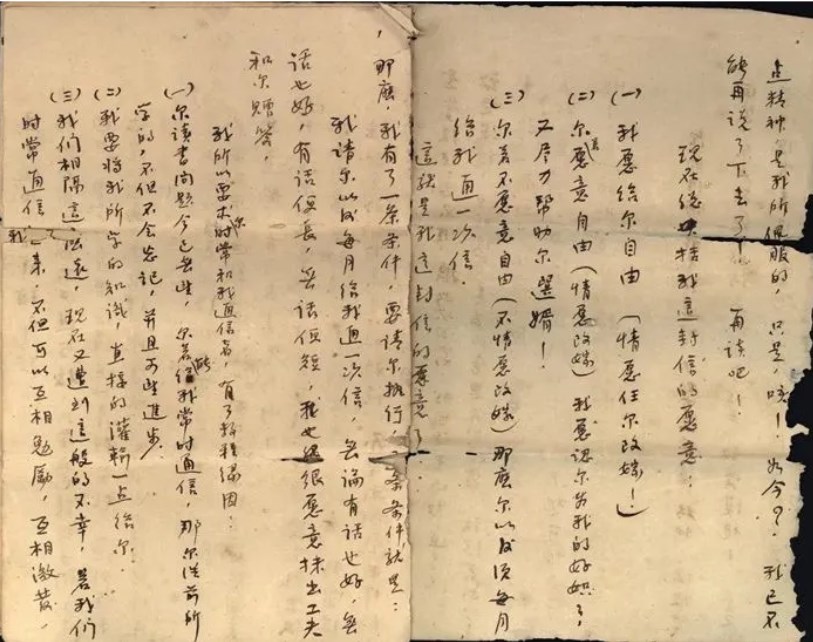 点精神，是我所佩服的，只是，咳！如今？我已不
能再说了下去了！再谈吧！
现在总括我这封信的愿意：
(一) 我愿给尔自由（情愿任尔改嫁！）
(二) 尔若愿意自由（情愿改嫁）我愿认尔为我的好姐了，
又尽力帮助尔选婿！
(三) 尔若不愿意自由（不情愿改嫁）那麽尔以后须每月
给我通一次信．
这就是我这封信的愿意了．
，那麽，我有了一条条件，要请尔执行，一条条件就是：
我请尔以后每月给我通一次信，无论有话也好，无
话也好，有话便长，无话便短，我也很愿意抹出工夫
和尔赠答，
我所以要求尔时常和我通信者，有了数种缘因：
(一) 尔读书问题今已无些，尔若能给我常时通信，那尔从前所
学的，不但不会忘记，并且可些进步．
(二) 我要将我所学的知识，直接的灌输一点给尔．
(三) 我们相隔这麽远，现在又遭到这般的不幸，若我们
时常通信一来，不但可以互相勉励，互相激发，